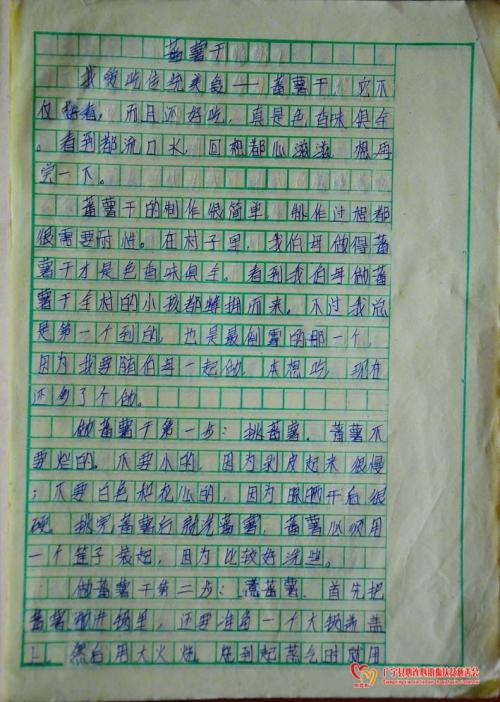 蕃薯干
我爱吃传统美食——蕃薯干，它不
仅甜，而且还好吃，真是色香味俱全
。看到都流口水，回想都心滋滋，想再
尝一下。
蕃薯干的制作很简单，制作过程都
很需要耐性。在村子里，我伯母做得蕃
薯干才是色香味俱全，看到我伯母做蕃
薯干全村的小孩都蜂拥而来，不过我总
是第一个到的，也是最倒霉的那一个，
因为我要随伯母一起做，本想吃，现在
还多了个做。
做蕃薯干第一步：挑蕃薯，蕃薯不
要烂的，不要小的，因为剥皮起来很慢
；不要白色和花心的，因为晒干后很
硬，挑完蕃薯后就洗蕃薯，蕃薯必须用
一个篮子装起，因为比较好洗些。
做蕃薯干第二步：煮蕃薯，首先把
蕃薯放进锅里，还要准备一个大锅盖盖
上，然后用大火烧，烧到起蒸气时就用
广宁县